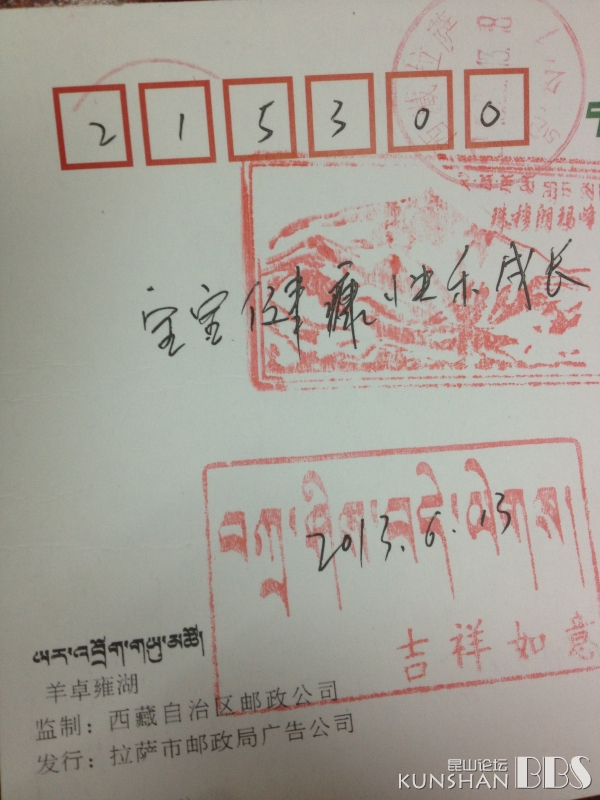 西藏拉萨
215300
珠穆朗玛峰
宝宝健康快乐成长
བཀྲ་ཤིས་བདེ་ལེགས།
2013.6.13
吉祥如意
ཡར་འབྲོག་གཡུ་མཚོ།
羊卓雍湖
监制：西藏自治区邮政公司
发行：拉萨市邮政局广告公司
昆山论坛
KUNSHAN BBS